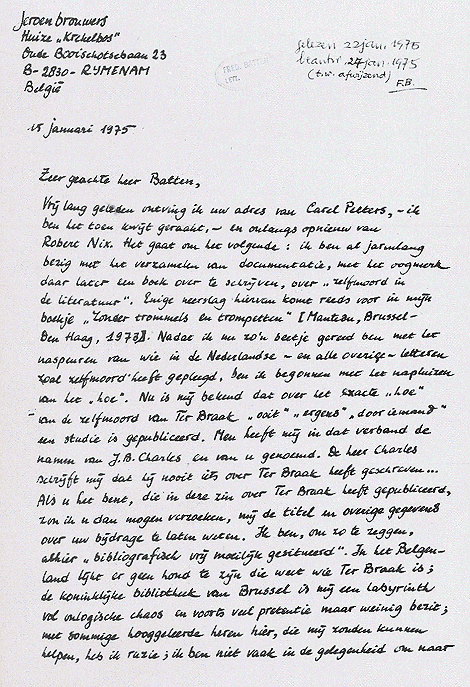 Jeroen Brouwers
Huize "Krekelbos"
Oude Booischotsebaan 23
B - 2830 - RYMENAM
België
gelezen 22 jan. 1975
beantw. 27 jan. 1975
(t.w. afwijzend)
F.B.
15 januari 1975
Zeer geachte heer Batten,
Vrij lang geleden ontving ik uw adres van Carel Peeters, - ik
ben het toen kwijt geraakt, - en onlangs opnieuw van
Robert Nix. Het gaat om het volgende: ik ben al jarenlang
bezig met het verzamelen van documentatie, met het oogmerk
daar later een boek over te schrijven, over "zelfmoord in
de literatuur". Enige neerslag hiervan komt reeds voor in mijn
boekje "Zonder trommels en trompetten" [Manteau, Brussel-
Den Haag, 1973]. Nadat ik nu zo'n beetje gereed ben met het
naspeuren van wie in de Nederlandse - en alle overige - letteren
zoal zelfmoord heeft gepleegd, ben ik begonnen met het napluizen
van het "hoe". Nu is mij bekend dat over het exacte "hoe"
van de zelfmoord van Ter Braak "ooit" "ergens", "door iemand"
een studie is gepubliceerd. Men heeft mij in dat verband de
namen van J.B. Charles en van u genoemd. De heer Charles
schrijft mij dat hij nooit iets over Ter Braak heeft geschreven...
Als u het bent, die in deze zin over Ter Braak heeft gepubliceerd,
zou ik u dan mogen verzoeken, mij de titel en overige gegevens
over uw bijdrage te laten weten. Ik ben, om zo te zeggen,
alhier "bibliografisch vrij moeilijk gesitueerd". In het Belgen-
land lijkt er geen hond te zijn die weet wie Ter Braak is;
de koninklijke bibliotheek van Brussel is mij een labyrinth
vol onlogische chaos en voorts veel pretentie maar weinig bezit;
met sommige hooggeleerde heren hier, die mij zouden kunnen
helpen, heb ik ruzie; ik ben niet vaak in de gelegenheid om naar